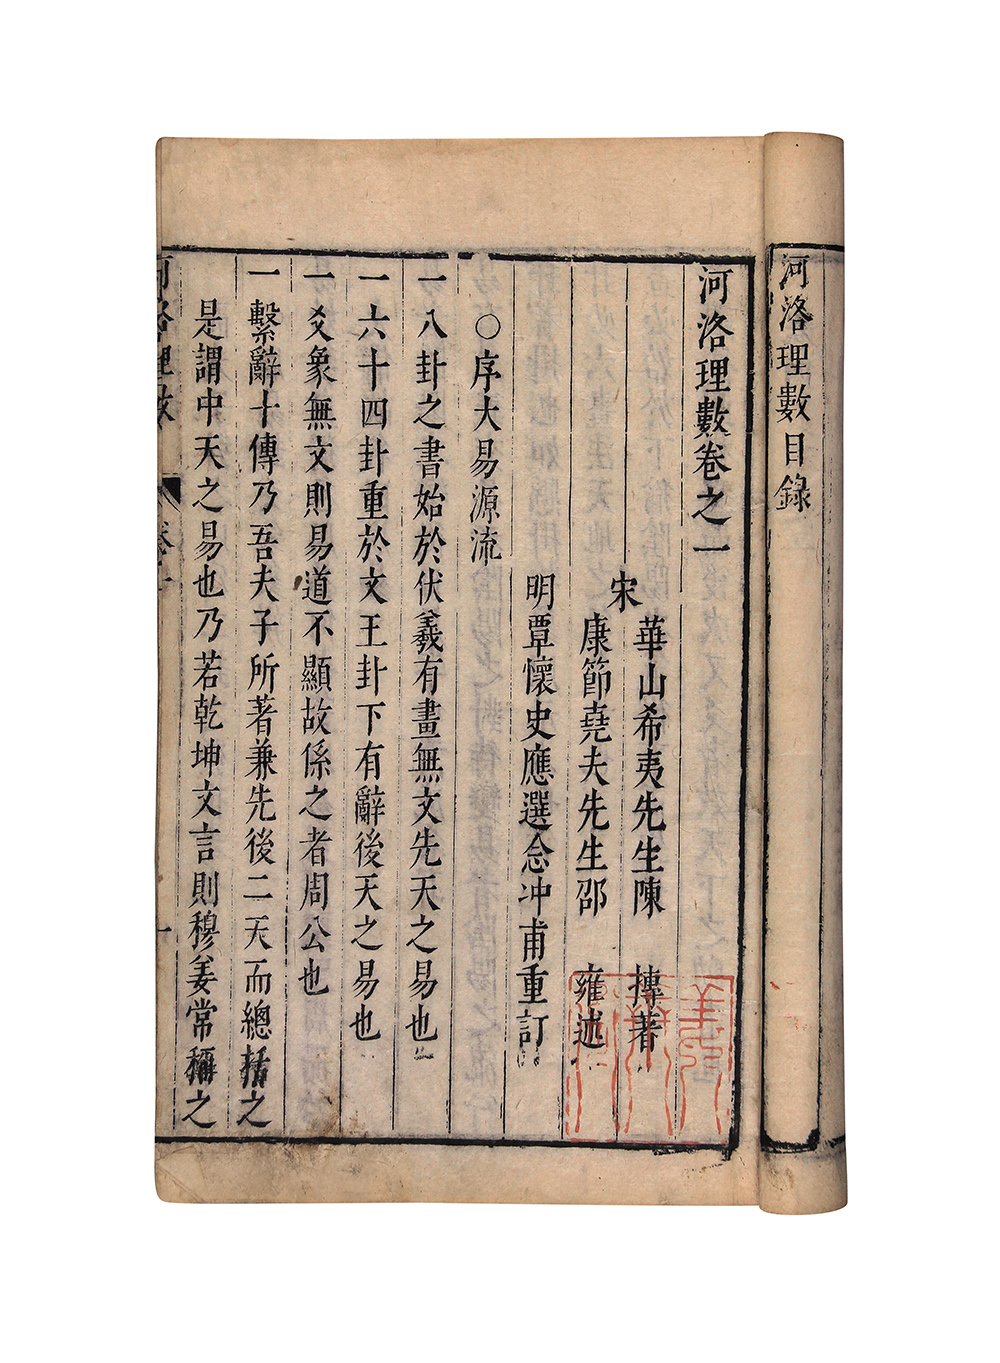 河洛理數目錄
河洛理數卷之一
宋
華山希夷先生陳摶著
康節堯夫先生邵雍述
明覃懷史應選念冲甫重訂
○序大易源流
一八卦之書始於伏羲有畫無文先天之易也
一六十四卦重於文王卦下有辭後天之易也
一爻象無文則易道不顯故係之者周公也
一繫辭十傳乃吾夫子所著兼先後二天而總括之
是謂中天之易也乃若乾坤文言則穆姜常稱之
河洛理數
卷一
一